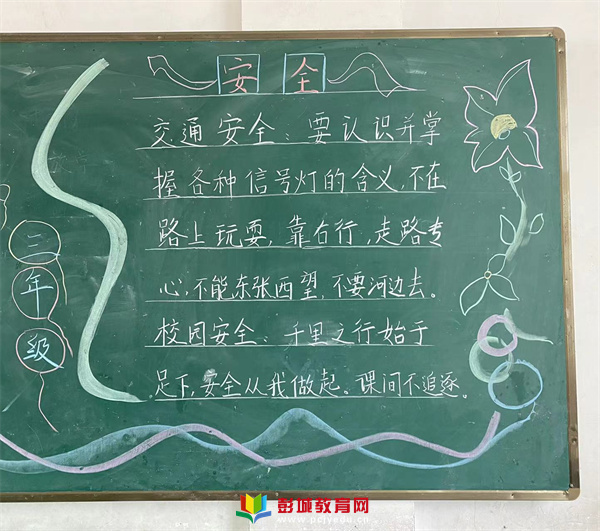 安全
交通安全：要认识并掌
握各种信号灯的含义，不在
路上玩耍，靠右行，走路专
心，不能东张西望，不要河边去。
校园安全：千里之行始于
足下，安全从我做起。课间不追逐。
二年级
彭城教育网
www.pcjyedu.cn